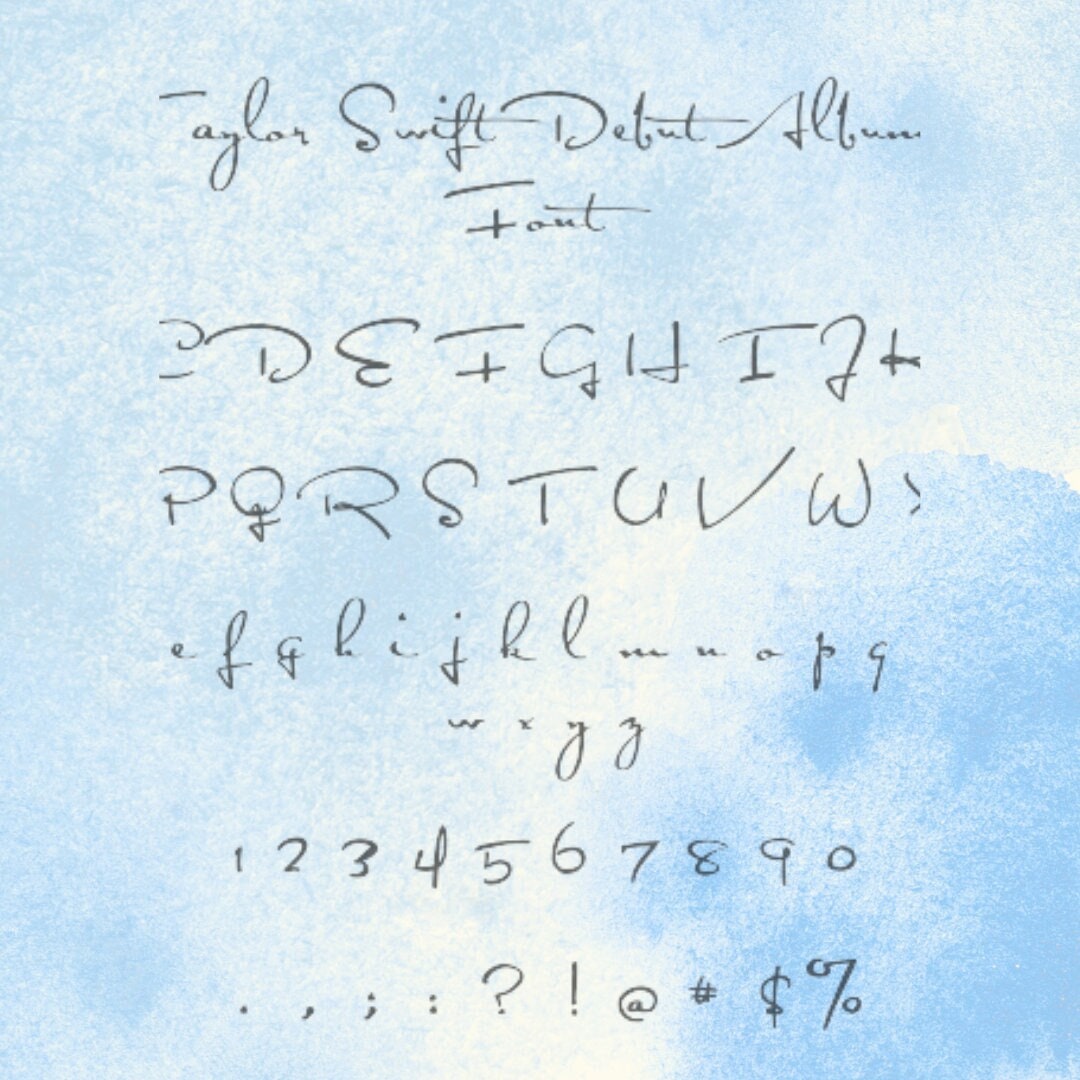 Taylor Swift Debut Album
Font
C D E F G H I J K
P Q R S T U V W
e f g h i j k l m n o p q
w x y z
1 2 3 4 5 6 7 8 9 0
. , ; : ? ! @ # $ %